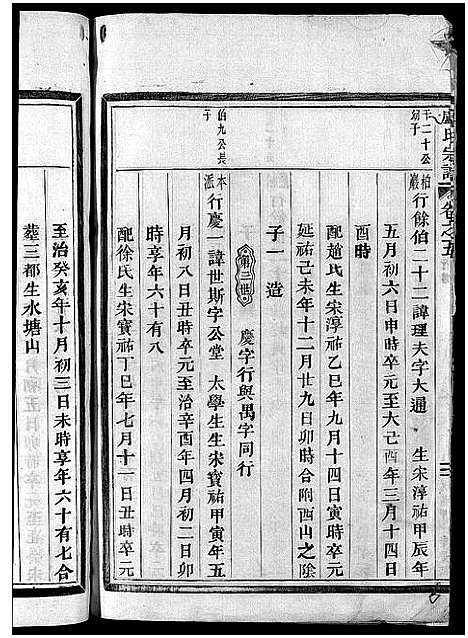 盧氏宗譜
卷之五
千二十公
幼子
柏巖
行餘伯二十二諱理夫字大通 生宋淳祐甲辰年
五月初六日申時卒元至大己酉年三月十四日
酉時
配趙氏生宋淳祐乙巳年九月十四日寅時卒元
延祐己未年十二月廿九日卯時合附西山之陰
子一 造
第二世 慶字行與禺字同行
伯九公長
子
本派
行慶一諱世斯字公堂 太學生生宋寶祐甲寅年五
月初八日丑時卒元至治辛酉年四月初二日卯
時享年六十有八
配徐氏生宋寶祐丁巳年七月十一日丑時卒元
至治癸亥年十月初三日未時享年六十有七合
葬三都生水塘山